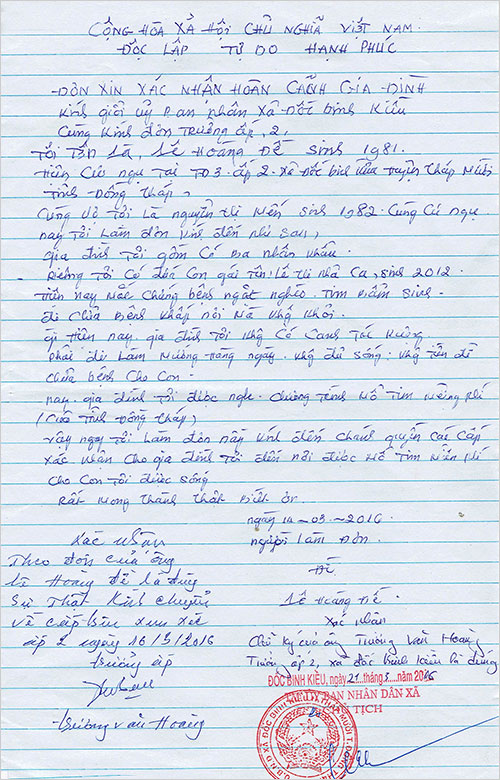 CỘNG HÒA XÃ HỘI CHỦ NGHĨA VIỆT NAM.
ĐỘC LẬP TỰ DO HẠNH PHÚC
ĐƠN XIN XÁC NHẬN HOÀN CẢNH GIA ĐÌNH
Kính giởi uỷ Ban nhân Xã Đốc Binh Kiều
Cùng Kính đơn Trưởng ấp, 2,
Tôi Tên Là, Lê Hoàng Đế sinh 1981.
Hiện Cư ngụ Tại TĐ3 ấp 2 Xã Đốc binh Kiều Huyện Tháp Mười
Tỉnh Đồng Tháp,
Cùng Vợ Tôi Là nguyễn thị Mến Sinh 1982 Cùng Cư ngụ
nay Tôi Làm đơn Kính đến như Sau,
gia đình Tôi gồm Có Ba nhân khẩu.
Riêng Tôi Có đứa Con gái Tên Lê thị nhã Ca, Sinh 2012.
Hiện nay Mắc Chứng bệnh ngặt nghèo. Tim Bẩm Sinh.
đi Chữa Bệnh khắp nơi Mà không khỏi.
Hiện nay gia đình Tôi không Có Canh Tác Ruộng
Phải đi Làm Mướng hàng ngày. không đủ Sống. không tiền để
chữa bệnh Cho Con.
nay gia đình Tôi được nghe. Chương Trình Mổ Tim Miễng Phí
(Của Tỉnh Đồng Tháp)
Vậy nay Tôi Làm đơn này Kính đến Chánh quyền Các Cấp
xác nhận Cho gia đình Tôi đến nơi được Mổ Tim Miễn Phí
Cho Con Tôi được Sống
Rất Mong Thành Thật Biết Ơn
ngày 14-03-2016
người Làm Đơn.
Đế
Lê Hoàng Đế
Xác Nhận
Theo đơn của ông
Lê Hoàng Đế là đúng
Sự Thật Kính chuyển
về cấp trên xem xét
ấp 2 ngày 16/3/2016
Trưởng ấp
Trương Văn Hoàng
Xác nhận
Chữ ký của ông Trương Văn Hoàng
Trưởng ấp 2, xã Đốc Binh Kiều là đúng
ĐỐC BINH KIỀU, ngày 21 tháng 3 năm 2016
BAN NHÂN DÂN XÃ
TỊCH